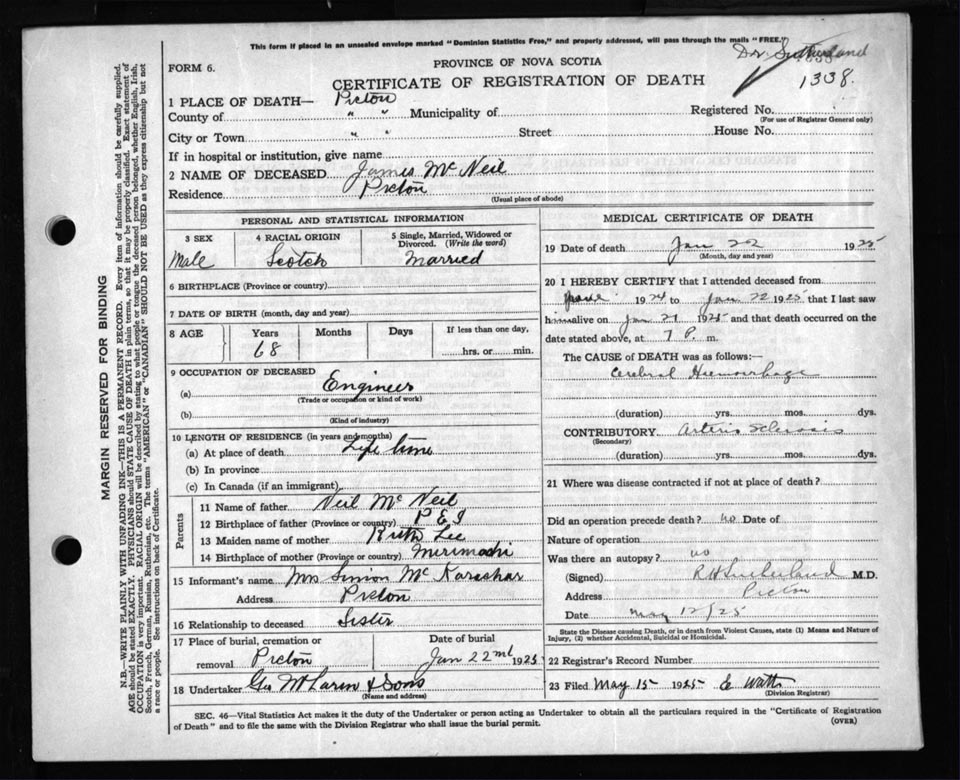 This form if placed in an unsealed envelope marked "Dominion Statistics Free," and properly addressed, will pass through the mails "FREE."
Dr. Sutherland
FORM 6.
PROVINCE OF NOVA SCOTIA
CERTIFICATE OF REGISTRATION OF DEATH
1338.
1 PLACE OF DEATH— Pictou
County of " " Municipality of Registered No.
(For use of Registrar General only)
City or Town " " Street House No.
If in hospital or institution, give name
2 NAME OF DECEASED James Mc Neil
Residence Pictou
(Usual place of abode)
MARGIN RESERVED FOR BINDING
N.B.—WRITE PLAINLY WITH UNFADING INK—THIS IS A PERMANENT RECORD. Every item of information should be carefully supplied.
AGE should be stated EXACTLY. PHYSICIANS should STATE CAUSE OF DEATH in plain terms, so that it may be properly classified. Exact statement of
OCCUPATION is very important. RACIAL ORIGIN will be described by stating to what people or tongue the deceased person belonged, whether English, Irish,
Scotch, French, German, Russian, Ruthenian, etc. The terms "AMERICAN" or "CANADIAN" SHOULD NOT BE USED as they express citizenship but not
a race or people. See instructions on back of Certificate.
PERSONAL AND STATISTICAL INFORMATION
3 SEX 4 RACIAL ORIGIN 5 Single, Married, Widowed or
Divorced. (Write the word)
Male Scotch Married
6 BIRTHPLACE (Province or country)
7 DATE OF BIRTH (month, day and year)
8 AGE Years Months Days If less than one day,
68 hrs. or min.
9 OCCUPATION OF DECEASED
(a) Engineer
(Trade or occupation or kind of work)
(b)
(Kind of industry)
10 LENGTH OF RESIDENCE (in years and months)
(a) At place of death Life time
(b) In province
(c) In Canada (if an immigrant)
Parents
11 Name of father Neil Mc Neil
12 Birthplace of father (Province or country) P E I
13 Maiden name of mother Ruth Lee
14 Birthplace of mother (Province or country) Merimachi
15 Informant's name Mrs Simon Mc
Address Pictou
16 Relationship to deceased Sister
17 Place of burial, cremation or Date of burial
removal Pictou Jan 22nd 1925
18 Undertaker Geo McLaren & Sons
(Name and address)
MEDICAL CERTIFICATE OF DEATH
19 Date of death Jan 22 1925
(Month, day and year)
20 I HEREBY CERTIFY that I attended deceased from
1924 to Jan 22 1925 that I last saw
him alive on Jan 21 1925 and that death occurred on
date stated above, at 7 P. m.
The CAUSE of DEATH was as follows:—
Cerebral Haemorrhage
(duration) yrs. mos. dys.
CONTRIBUTORY Arterio Sclerosis
(Secondary)
(duration) yrs. mos. dys.
21 Where was disease contracted if not at place of death?
Did an operation precede death? no Date of
Nature of operation
Was there an autopsy? no
(Signed) R H Sutherland M.D.
Address Pictou
Date May 12/25
State the Disease causing Death, or in death from Violent Causes, state (1) Means and Nature of
Injury, (2) whether Accidental, Suicidal or Homicidal.
22 Registrar's Record Number
23 Filed May 15 1925 E Watt
(Division Registrar)
SEC. 46—Vital Statistics Act makes it the duty of the Undertaker or person acting as Undertaker to obtain all the particulars required in the "Certificate of Registration
of Death" and to file the same with the Division Registrar who shall issue the burial permit.
(OVER)